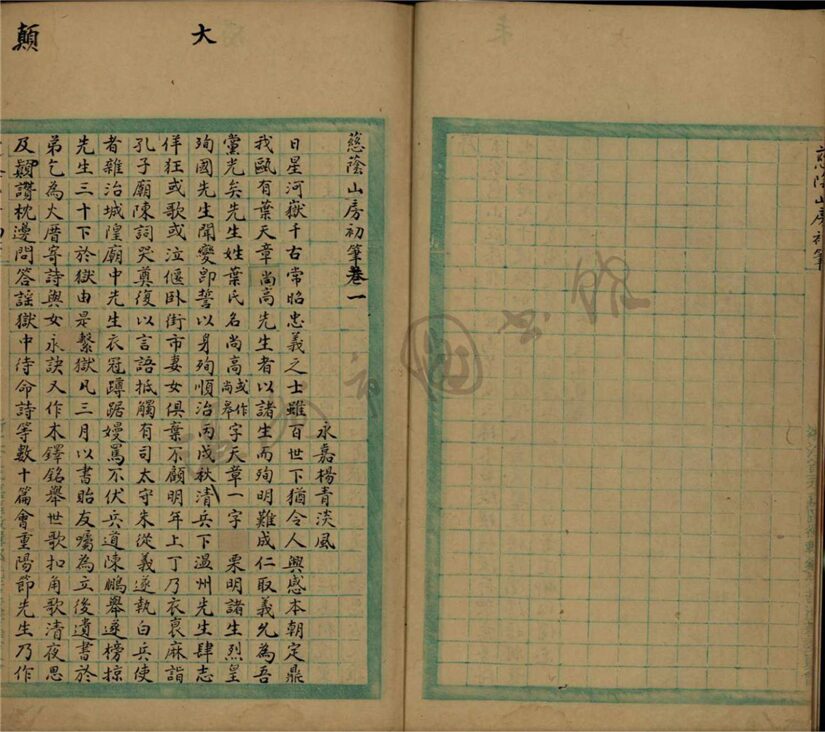 大
顛
慈蔭山房初筆卷一
永嘉楊青淡風
日星河嶽千古常昭忠義之士雖百世下猶令人興感本朝定鼎
我甌有葉天章尚高先生者以諸生而殉明難成仁取義允為吾
黨光矣先生姓葉氏名尚高或作尚皋字天章一字 栗明諸生烈皇
殉國先生聞變即誓以身殉順治丙戌秋清兵下溫州先生肆志
佯狂或歌或泣偃臥街市妻女俱棄不顧明年上丁乃衣衰麻詣
孔子廟陳詞哭奠復以言語抵觸有司太守朱從義遂執白兵使
者雜治城隍廟中先生衣冠蹲踞嫚罵不伏兵道陳鵬舉遂榜掠
先生三十下於獄由是繫獄凡三月以書貽友囑為立後遺書於
弟乞為大厝寄詩與女永訣又作木鐸銘舉世歌扣角歌清夜思
及顛讚枕邊問答謠獄中待命詩等數十篇會重陽節先生乃作
慈蔭山房初筆